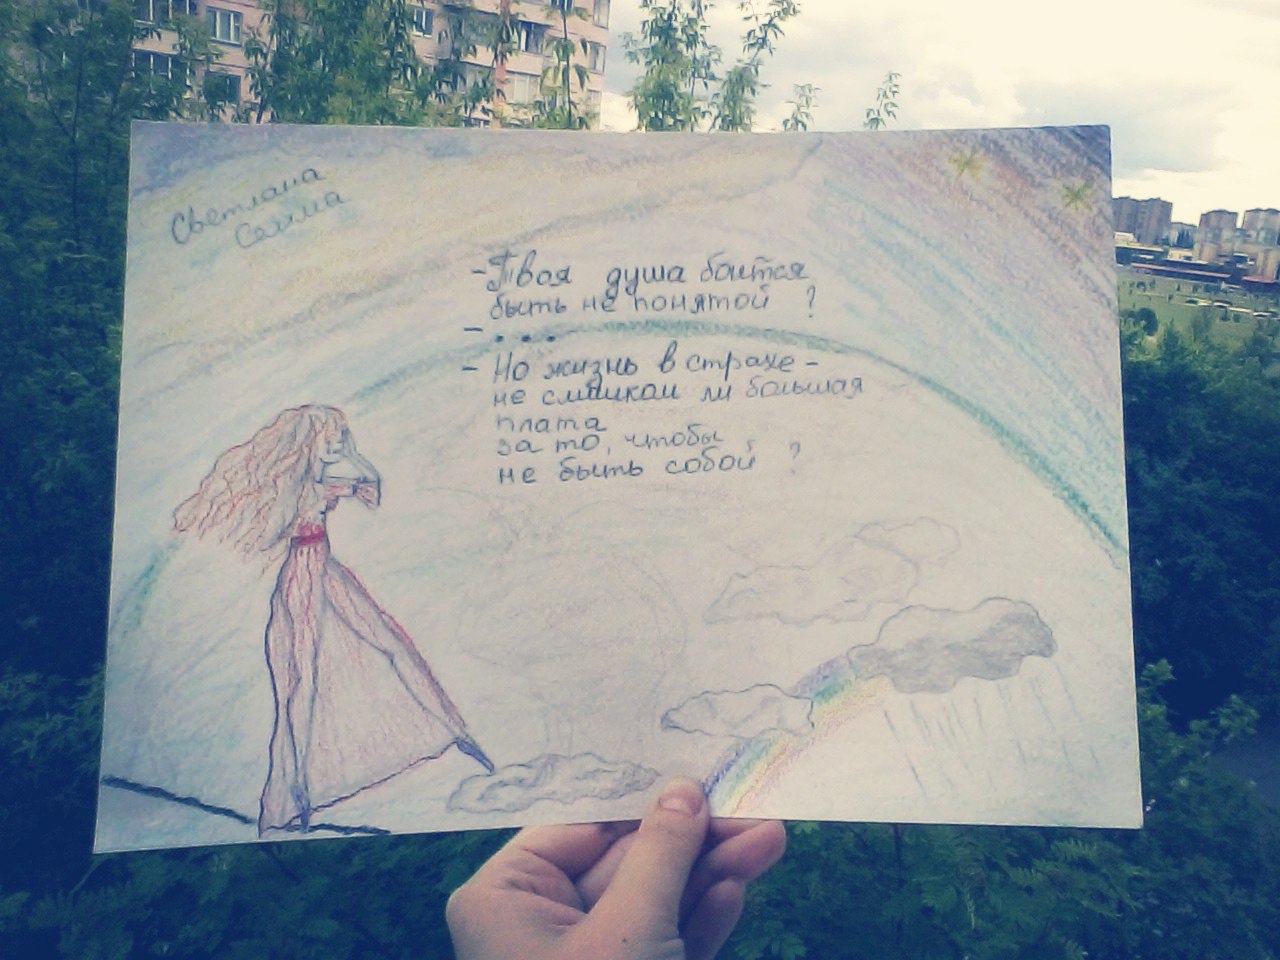 Светлана
Селма
- Твоя душа боится
быть не понятой ?
- ....
- Но жизнь в страхе -
не слишком ли большая
плата
за то, чтобы
не быть собой ?